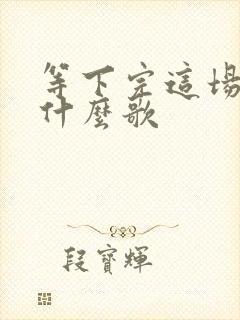 等下完這場
什麼歌
段寶輝